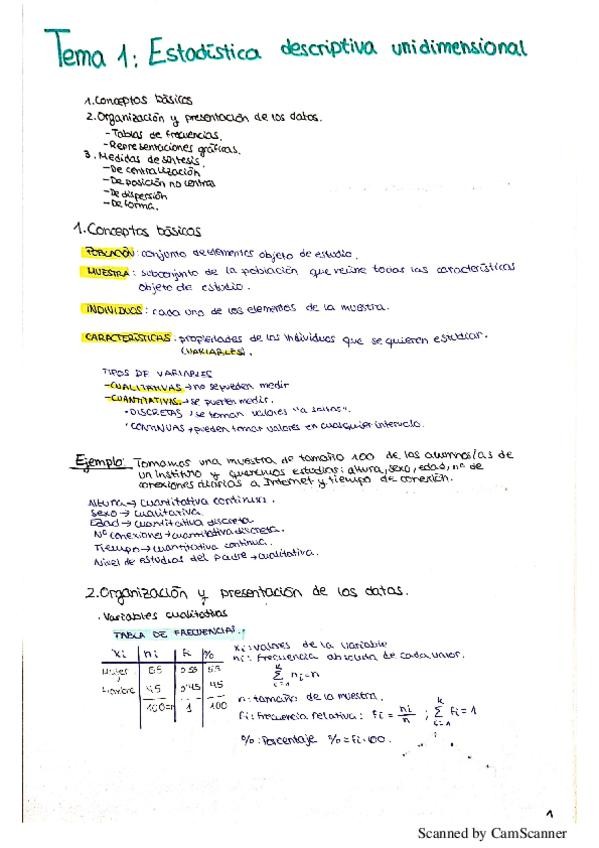 Tema 1: Estadística descriptiva unidimensional
1. Conceptos básicos
2. Organización y presentación de los datos.
- Tablas de frecuencias.
- Representaciones gráficas.
3. Medidas de síntesis.
- De centralización
- De posición no central
- De dispersión
- De forma.
1. Conceptos básicos
POBLACIÓN: conjunto de elementos objeto de estudio.
MUESTRA: subconjunto de la población que reúne todas las características
objeto de estudio.
INDIVIDUOS: cada uno de los elementos de la muestra.
CARACTERÍSTICAS: propiedades de los individuos que se quieren estudiar.
(VARIABLES).
TIPOS DE VARIABLES
- CUALITATIVAS → no se pueden medir
- CUANTITATIVAS → se pueden medir.
· DISCRETAS: se toman valores "a saltos".
· CONTINUAS → pueden tomar valores en cualquier intervalo.
Ejemplo: Tomamos una muestra de tamaño 100 de los alumnos/as de
un instituto y queremos estudiar: altura, sexo, edad, nº de
conexiones diarias a Internet y tiempo de conexión.
Altura → cuantitativa continua.
Sexo → cualitativa.
Edad → cuantitativa discreta
Nº conexiones → cuantitativa discreta.
Tiempo → cuantitativa continua.
Nivel de estudios del padre → cualitativa.
2. Organización y presentación de los datos.
· Variables cualitativas
TABLA DE FRECUENCIAS.
xi ni fi %
Mujer 55 0'55 55
Hombre 45 0'45 45
100=n 1 100
xi: valores de la variable
ni: frecuencia absoluta de cada valor.
k Σ i=1 ni = n
n: tamaño de la muestra.
fi: frecuencia relativa: fi = ni/n ; k Σ i=1 fi = 1
%: Porcentaje % = fi·100.
1
Scanned by CamScanner